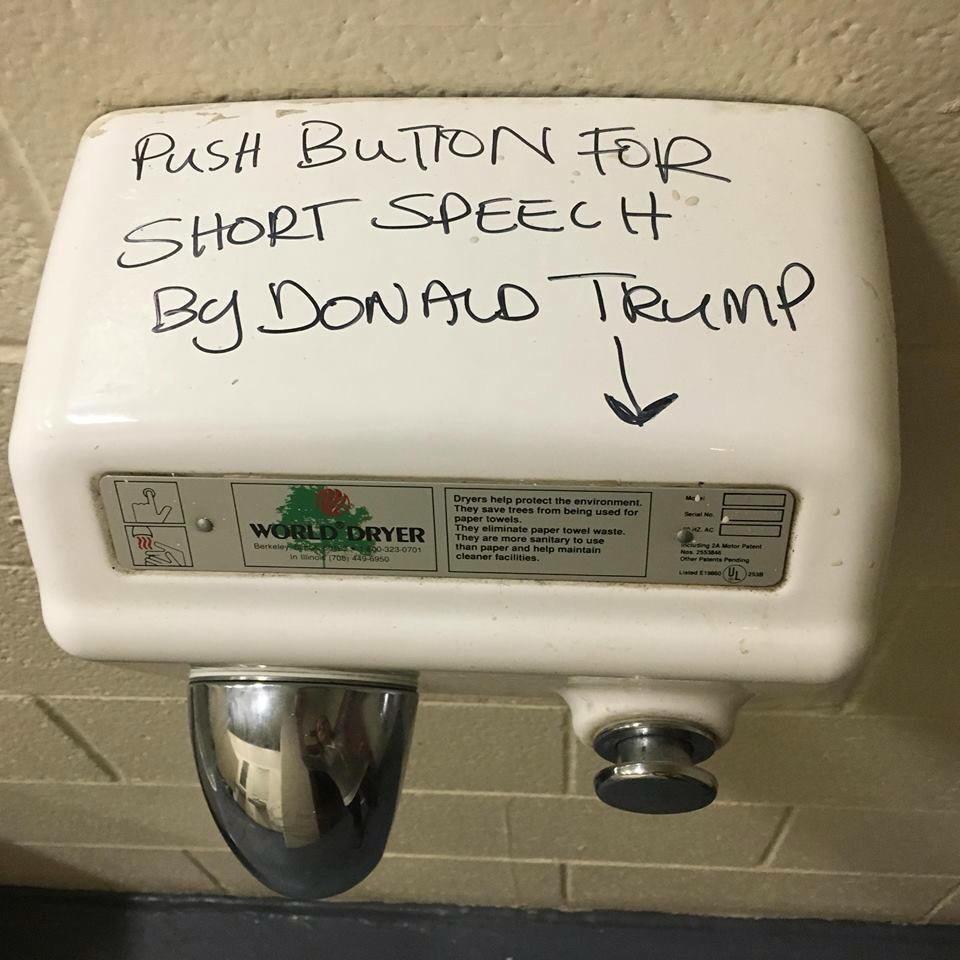 PUSH BUTTON FOR
SHORT SPEECH
BY DONALD TRUMP
WORLD DRYER
Berkeley
In Illinois (708) 449-6950
Dryers help protect the environment.
They save trees from being used for
paper towels.
They eliminate paper towel waste.
They are more sanitary to use
than paper and help maintain
cleaner facilities.
Serial No.
HZ. AC
Including 2A Motor Patent
Nos. 2553846
Other Patents Pending
Listed UL 253B